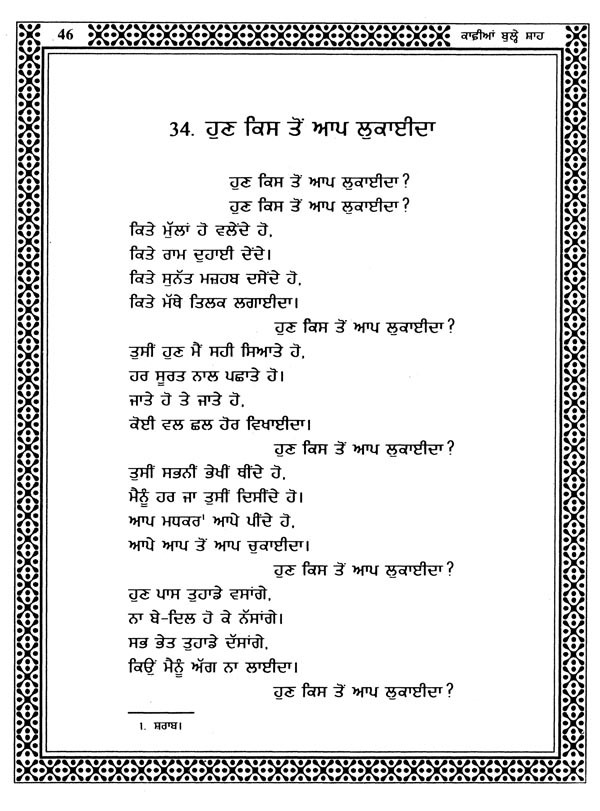 46
ਕਾਫ਼ੀਆਂ ਬੁਲ੍ਹੇ ਸ਼ਾਹ
34. ਹੁਣ ਕਿਸ ਤੋਂ ਆਪ ਲੁਕਾਈਦਾ
ਹੁਣ ਕਿਸ ਤੋਂ ਆਪ ਲੁਕਾਈਦਾ?
ਹੁਣ ਕਿਸ ਤੋਂ ਆਪ ਲੁਕਾਈਦਾ?
ਕਿਤੇ ਮੁੱਲਾਂ ਹੋ ਵਲੇਂਦੇ ਹੋ,
ਕਿਤੇ ਰਾਮ ਦੁਹਾਈ ਦੇਂਦੇ।
ਕਿਤੇ ਸੁਨੱਤ ਮਜ਼ਹਬ ਦਸੇਂਦੇ ਹੋ,
ਕਿਤੇ ਮੱਥੇ ਤਿਲਕ ਲਗਾਈਦਾ।
ਹੁਣ ਕਿਸ ਤੋਂ ਆਪ ਲੁਕਾਈਦਾ?
ਤੁਸੀਂ ਹੁਣ ਮੈਂ ਸਹੀ ਸਿਆਤੇ ਹੋ,
ਹਰ ਸੂਰਤ ਨਾਲ ਪਛਾਤੇ ਹੋ।
ਜਾਤੇ ਹੋ ਤੇ ਜਾਤੇ ਹੋ,
ਕੋਈ ਵਲ ਛਲ ਹੋਰ ਵਿਖਾਈਦਾ।
ਹੁਣ ਕਿਸ ਤੋਂ ਆਪ ਲੁਕਾਈਦਾ?
ਤੁਸੀਂ ਸਭਨੀਂ ਭੇਖੀਂ ਥੀਂਦੇ ਹੋ,
ਮੈਨੂੰ ਹਰ ਜਾ ਤੁਸੀਂ ਦਿਸੀਂਦੇ ਹੋ।
ਆਪ ਮਧਕਰ¹ ਆਪੇ ਪੀਂਦੇ ਹੋ,
ਆਪੇ ਆਪ ਤੋਂ ਆਪ ਚੁਕਾਈਦਾ।
ਹੁਣ ਕਿਸ ਤੋਂ ਆਪ ਲੁਕਾਈਦਾ?
ਹੁਣ ਪਾਸ ਤੁਹਾਡੇ ਵਸਾਂਗੇ,
ਨਾ ਬੇ-ਦਿਲ ਹੋ ਕੇ ਨੱਸਾਂਗੇ।
ਸਭ ਭੇਤ ਤੁਹਾਡੇ ਦੱਸਾਂਗੇ,
ਕਿਉਂ ਮੈਨੂੰ ਅੱਗ ਨਾ ਲਾਈਦਾ।
ਹੁਣ ਕਿਸ ਤੋਂ ਆਪ ਲੁਕਾਈਦਾ?
1. ਸ਼ਰਾਬ।